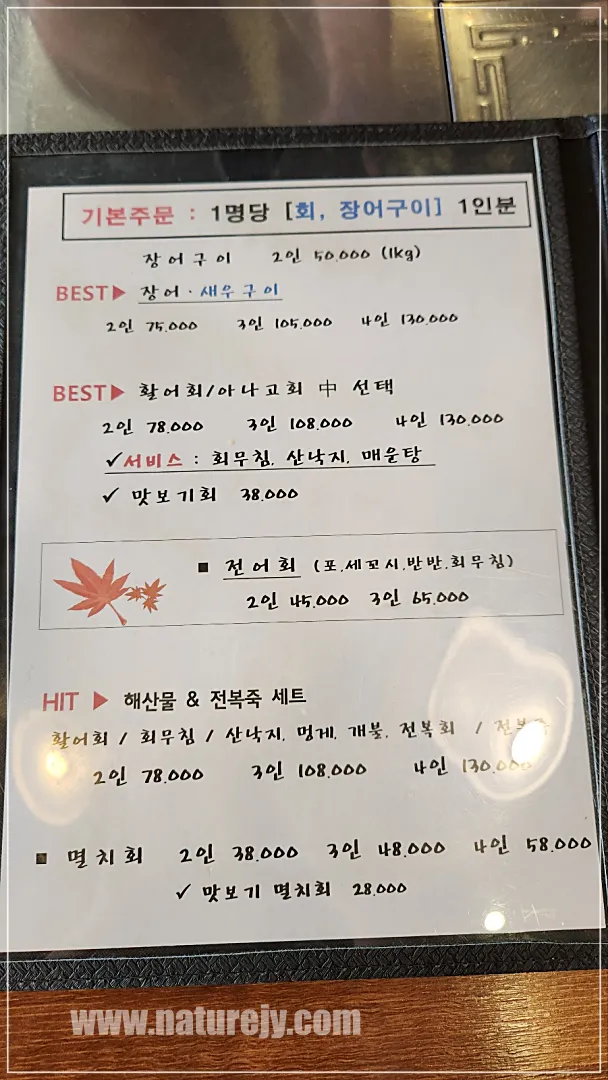 기본주문 : 1명당 [회, 장어구이] 1인분
장어구이 2인 50.000 (1kg)
BEST▶ 장어 · 새우구이
2인 75.000 3인 105.000 4인 130.000
BEST▶ 활어회/아나고회 中 선택
2인 78.000 3인 108.000 4인 130.000
✓서비스 : 회무침, 산낙지, 매운탕
✓ 맛보기회 38.000
■ 전어회 (포.세꼬시.반반.회무침)
2인 45.000 3인 65.000
HIT ▶ 해산물 & 전복죽 세트
활어회 / 회무침 / 산낙지, 멍게, 개불, 전복회 / 전복죽
2인 78.000 3인 108.000 4인 130.000
■ 멸치회 2인 38.000 3인 48.000 4인 58.000
✓ 맛보기 멸치회 28.000
www.naturejy.com